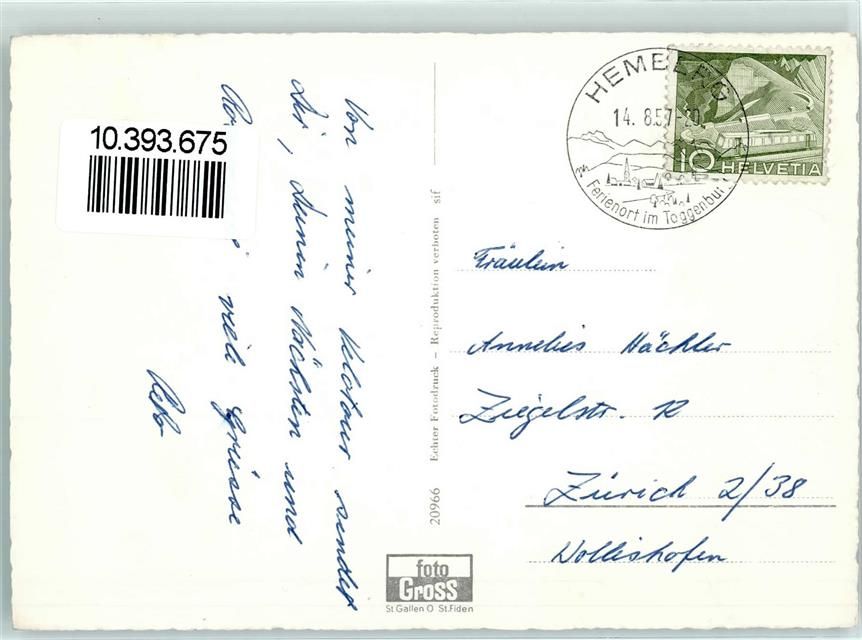 Von meiner Velotour sendet
Dir, Deinen Nächsten und
viele Grüsse
Reto
10.393.675
20966 Echter Fotodruck – Reproduktion verboten sif
foto
Gross
St Gallen O St.Fiden
HEMBERG
14. 8.57-20
Ferienort im Toggenburg
10
HELVETIA
Fräulein
Annelies Hächler
Ziegelstr. 12
Zürich 2/38
Wollishofen